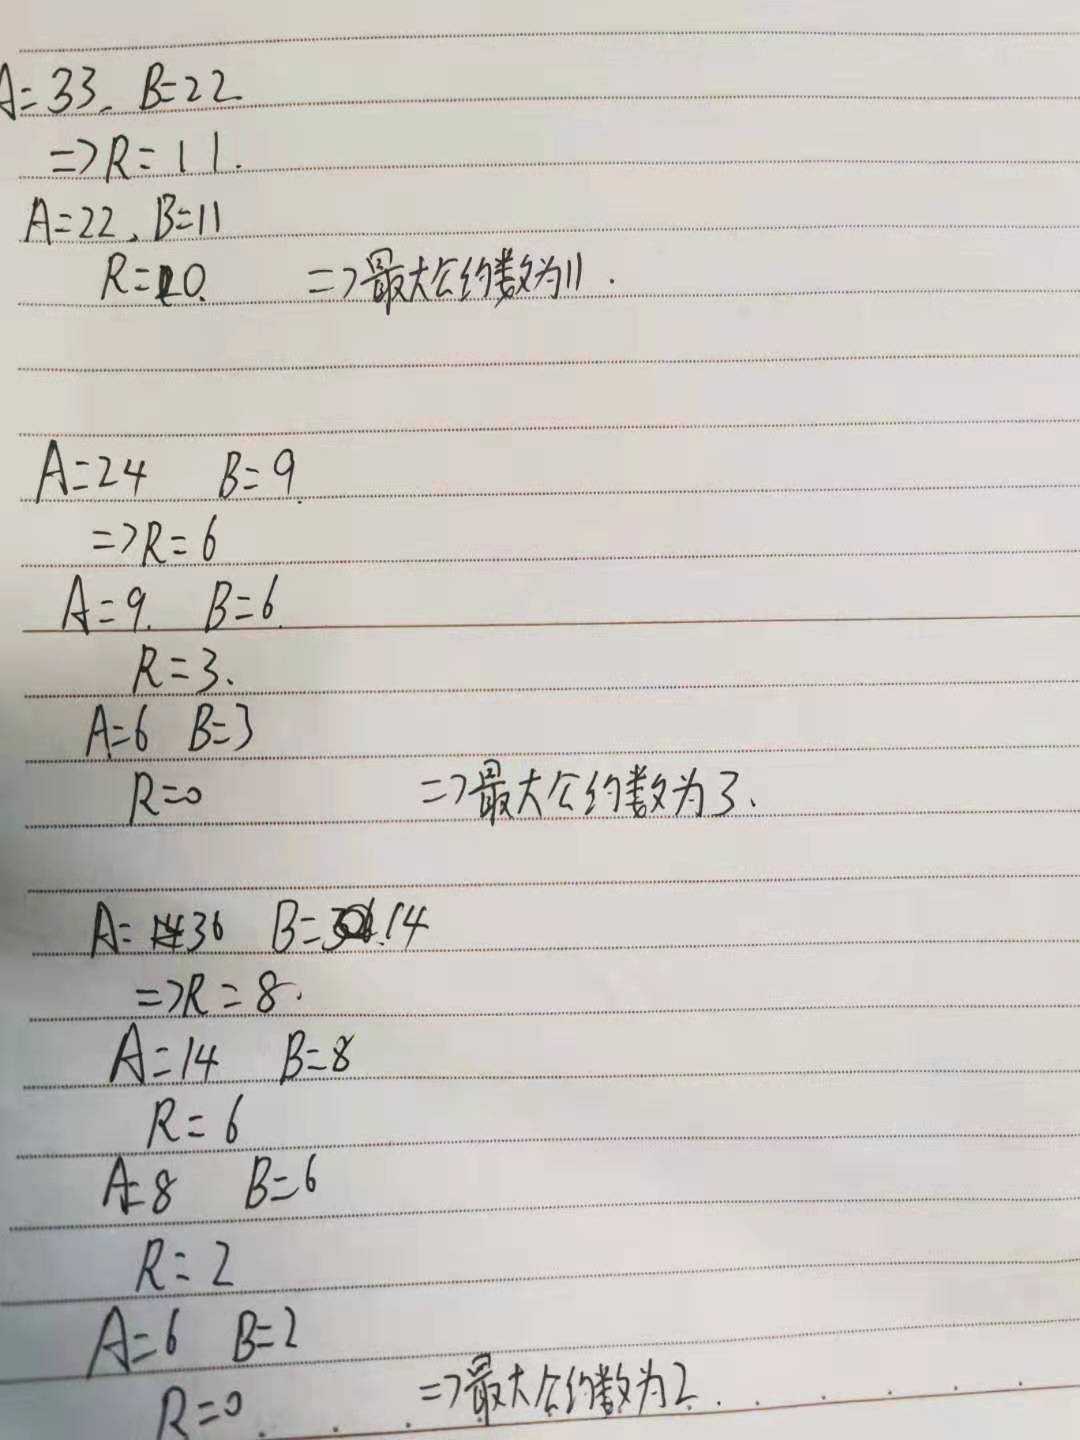 A=33. B=22.
=>R=11.
A=22, B=11
R=0. =>最大公约数为11.
A=24 B=9.
=>R=6
A=9. B=6.
R=3.
A=6 B=3
R=0 =>最大公约数为3.
A=36 B=14
=>R=8.
A=14 B=8
R=6
A=8 B=6
R=2
A=6 B=2
R=0 =>最大公约数为2.